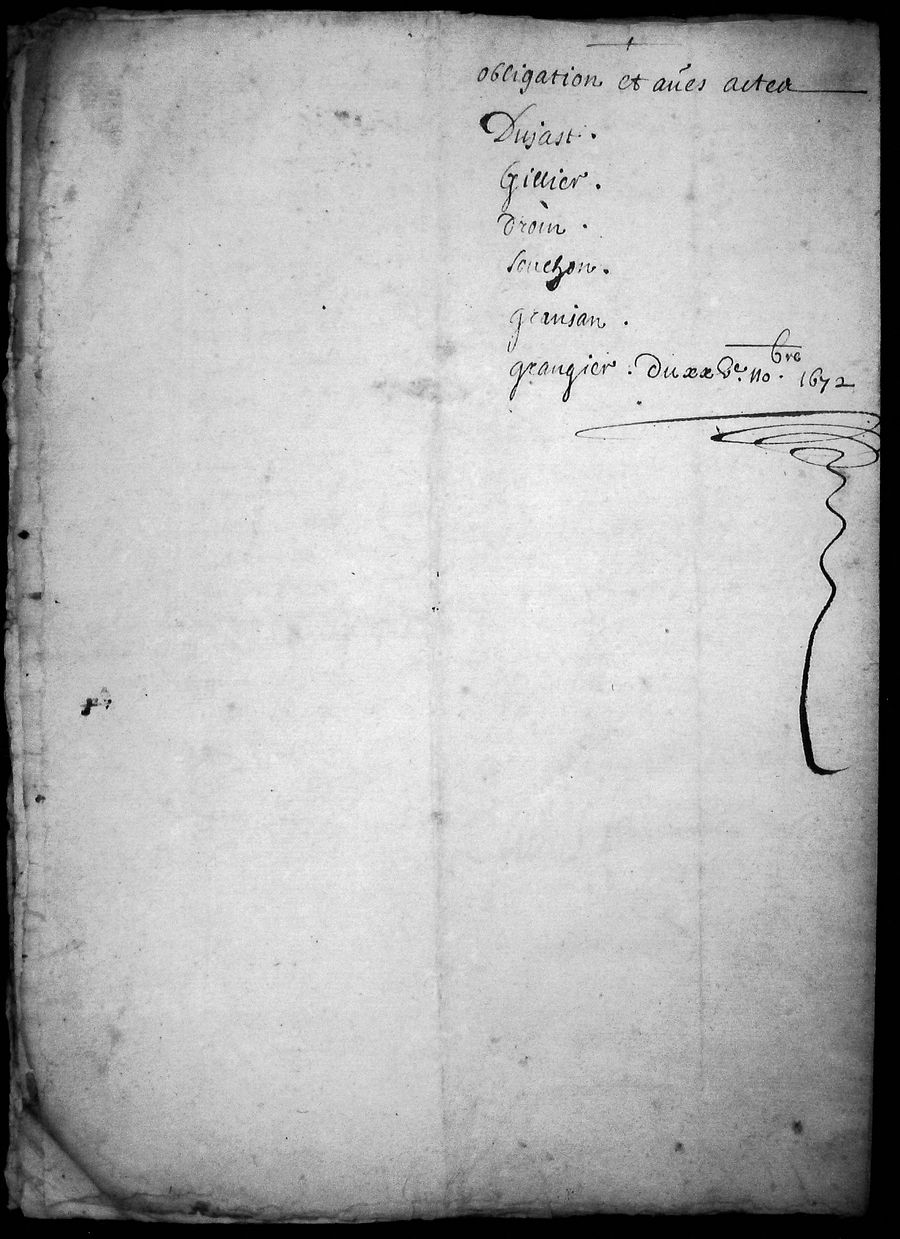 obligation et aũes actes
Dujast.
Gillier.
droin.
souchon.
granjan.
grangier. Du xxve. no.bre 1672